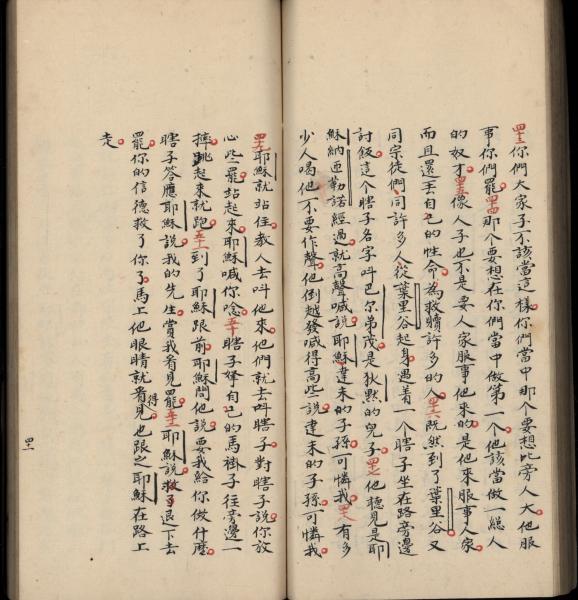 四三你們大家子不該當這樣你們當中那个要想比旁人大他服
事你們罷四四那个要想在你們當中做第一个他該當做一總人
的奴才四五像人子也不是要人家服事他來的是他來服事人家
而且還丟自己的性命為救贖許多的人四六既然到了葉里谷又
同宗徒們同許多人從葉里谷起身遇着一个瞎子坐在路旁邊
討飯這个瞎子名字叫巴尔第茂是狄黙的兒子四七他聽見是耶
穌納匝勒諾經過就高聲喊說耶穌達未的子孫可憐我四八有多
少人喝他不要作聲他倒越發喊得高些說達未的子孫可憐我
四九耶穌就站住教人去叫他來他們就去叫瞎子對瞎子說你放
心些罷站起來耶穌喊你唸五十瞎子拏自己的馬褂子往旁邊一
摔跳起來就跑五一到了耶穌跟前耶穌問他說要我給你做什麽
瞎子答應耶穌說我的先生賞我看見罷五二耶穌說退下去
罷你的信德救了你了馬上他眼睛就看得見也跟之耶穌在路上
走
四一